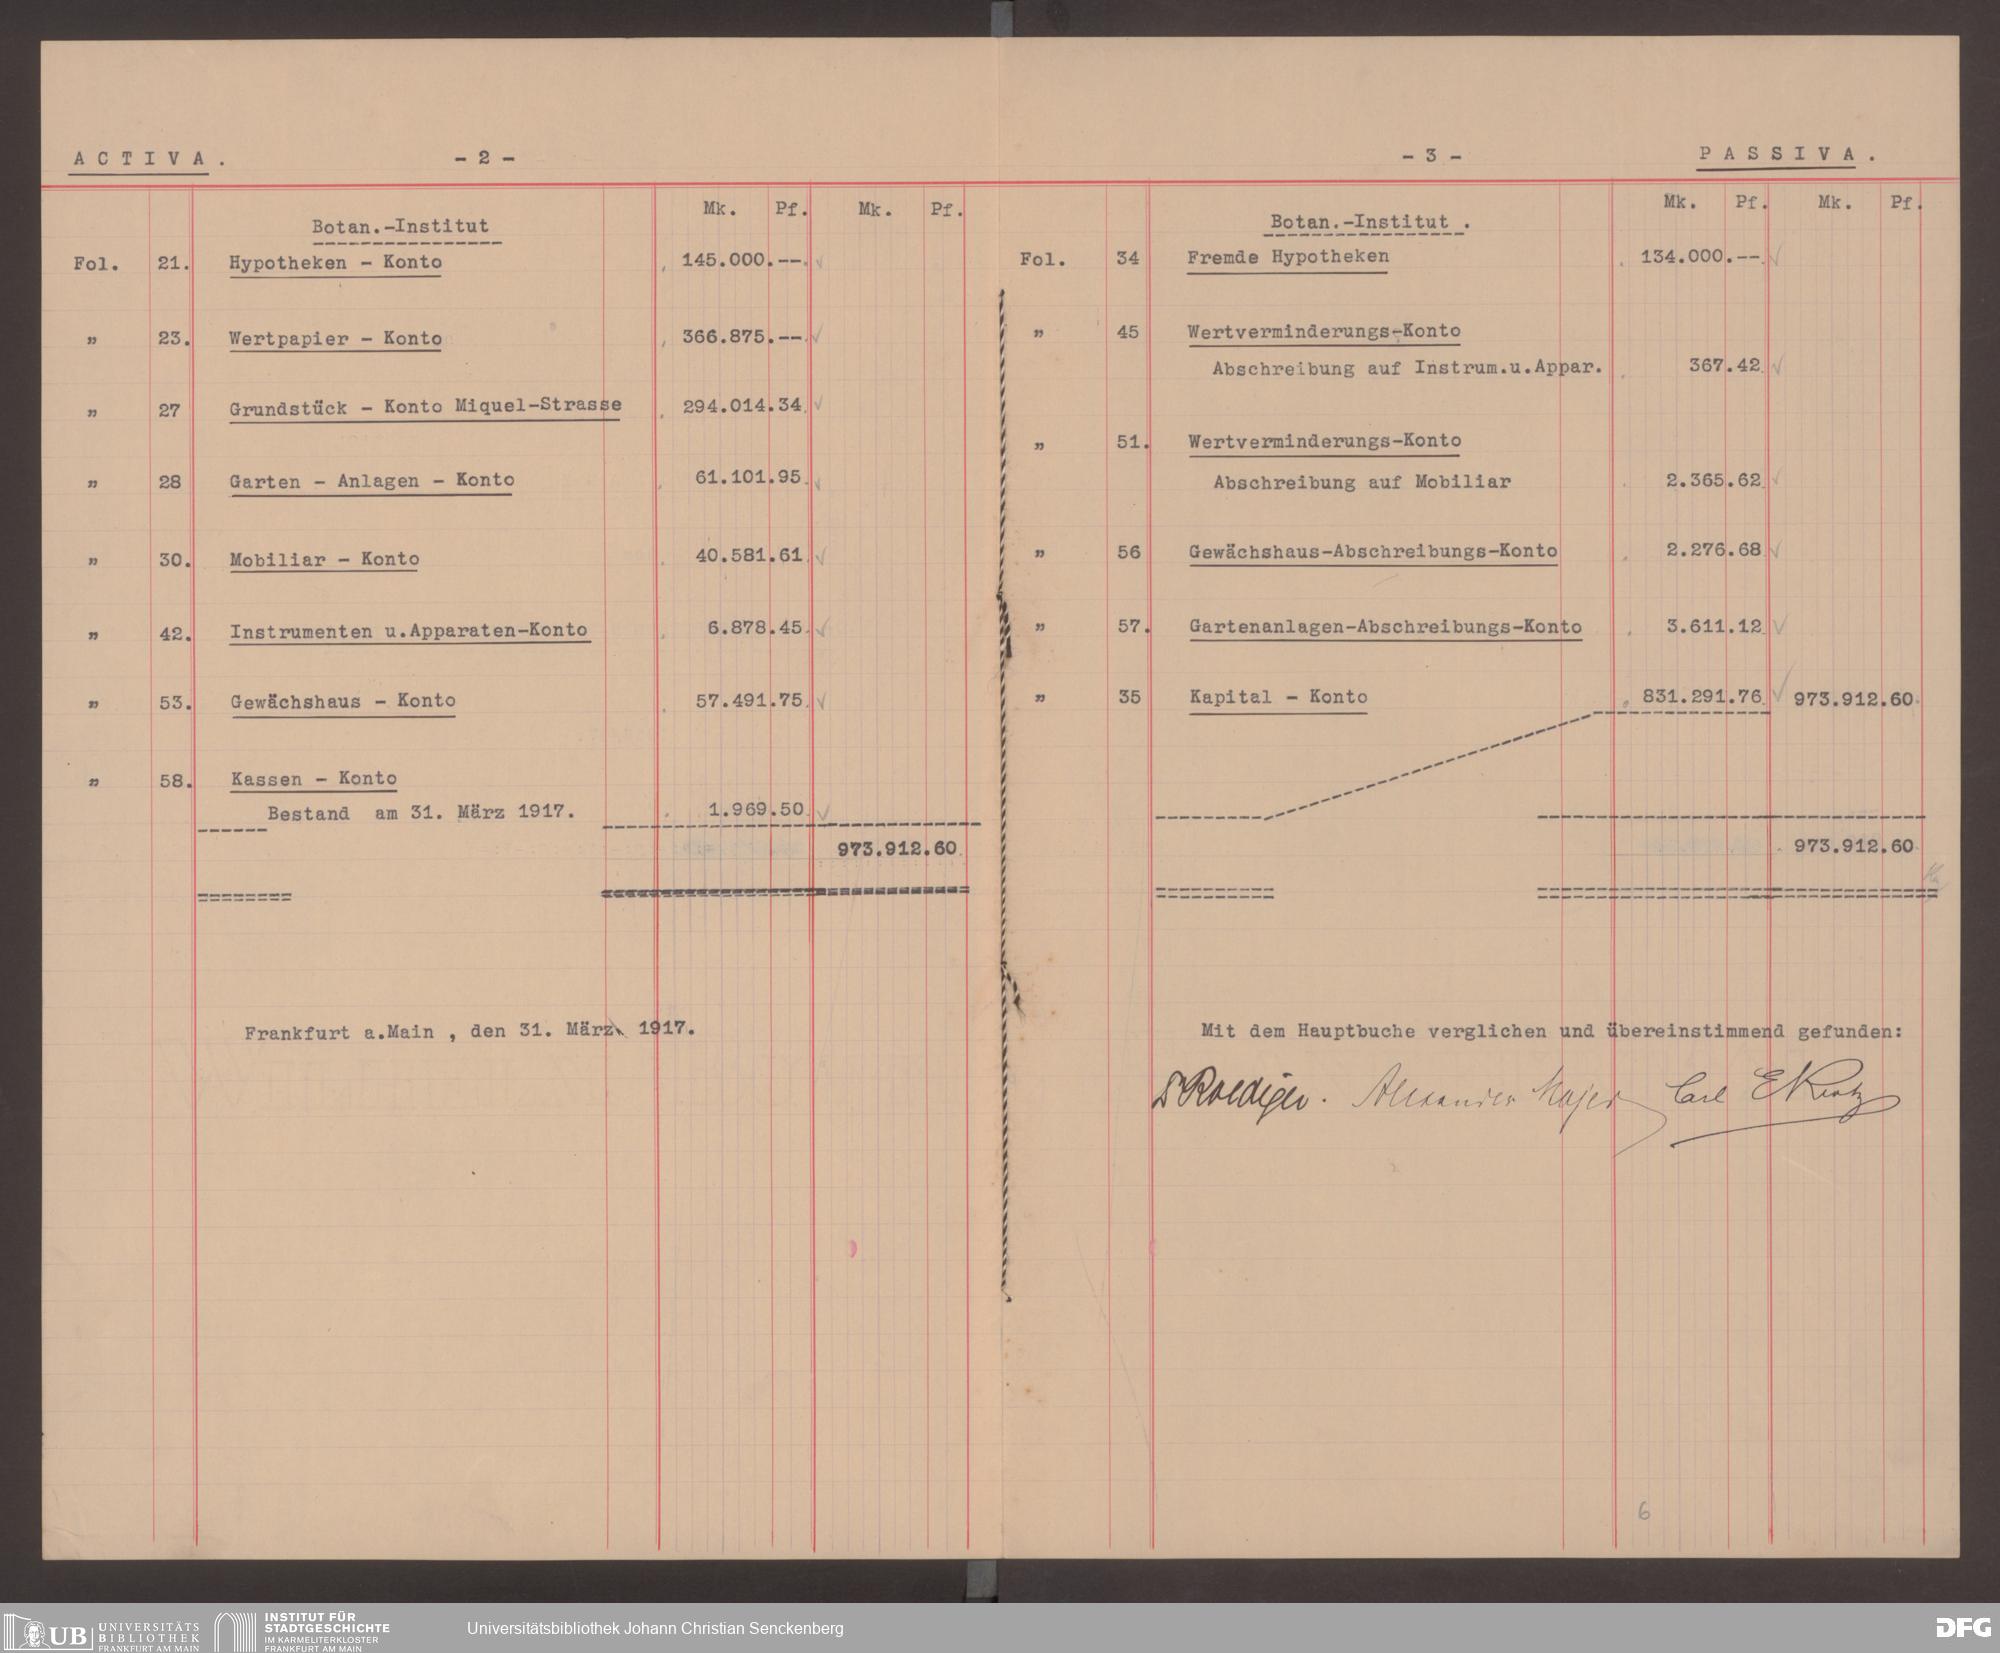 A C T I V A .
- 2 -
Mk. Pf. Mk. Pf.
Botan.-Institut
Fol. 21. Hypotheken - Konto 145.000.--.
" 23. Wertpapier - Konto 366.875.--.
" 27 Grundstück - Konto Miquel-Strasse 294.014.34
" 28 Garten - Anlagen - Konto 61.101.95
" 30. Mobiliar - Konto 40.581.61
" 42. Instrumenten u.Apparaten-Konto 6.878.45
" 53. Gewächshaus - Konto 57.491.75
" 58. Kassen - Konto
Bestand am 31. März 1917. 1.969.50
973.912.60
Frankfurt a.Main , den 31. März 1917.
- 3 -
P A S S I V A .
Mk. Pf. Mk. Pf.
Botan.-Institut .
Fol. 34 Fremde Hypotheken 134.000.--
" 45 Wertverminderungs-Konto
Abschreibung auf Instrum.u.Appar. 367.42
" 51. Wertverminderungs-Konto
Abschreibung auf Mobiliar 2.365.62
" 56 Gewächshaus-Abschreibungs-Konto 2.276.68
" 57. Gartenanlagen-Abschreibungs-Konto 3.611.12
" 35 Kapital - Konto 831.291.76 973.912.60
973.912.60
Mit dem Hauptbuche verglichen und übereinstimmend gefunden:
Dr Roediger. Alexander Majer Carl
6
UB UNIVERSITÄTS
BIBLIOTHEK
FRANKFURT AM MAIN
INSTITUT FÜR
STADTGESCHICHTE
IM KARMELITERKLOSTER
FRANKFURT AM MAIN
Universitätsbibliothek Johann Christian Senckenberg
DFG